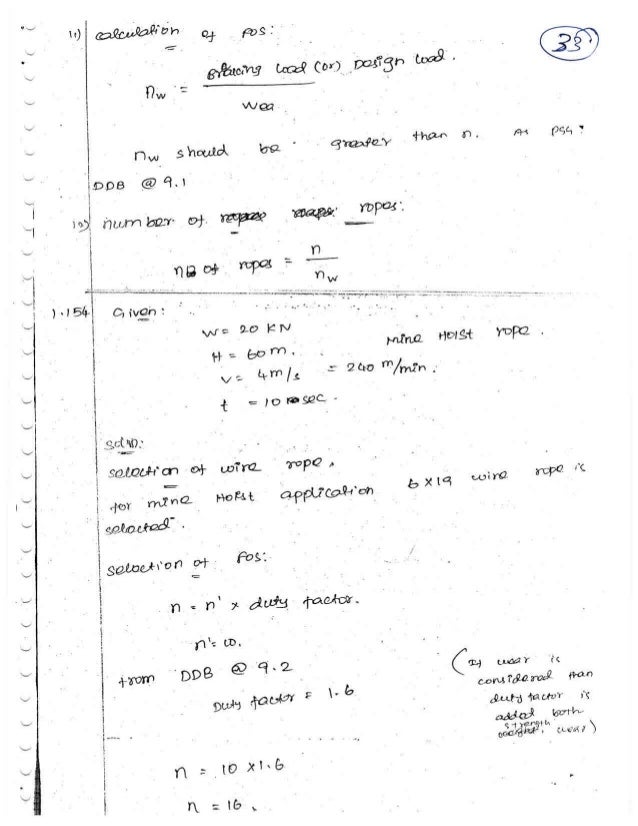 11) calculation of FOS:
35
nw = Breacing load (or) Design load.
Wea
nw should be greater than n. As PSG
DDB @ 9.1
12) number of ropes:
no of ropes = n / nw
1.154 Given:
W = 20 KN
Mine Hoist rope.
H = 60 m.
V = 4 m/s = 240 m/min.
t = 10 sec.
Soln:
selection of wire rope,
for mine Hoist application 6 x 19 wire rope is
selected.
selection of FOS:
n = n' x duty factor.
n' = 10.
from DDB @ 9.2
Duty factor = 1.6
(If wear is
considered than
duty factor is
added both
strength
wear)
n = 10 x 1.6
n = 16.